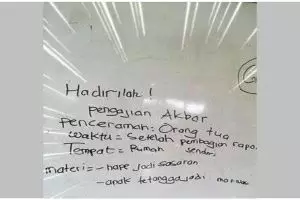 Hadirilah !
pengajian Akbar
penceramah: Orang tua
waktu = Setelah pembagian rapor
Tempat = Rumah sendiri
materi = - hape jadi sasaran
- anak tetangga jadi